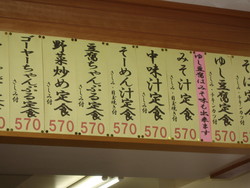 そば
ゆし豆腐はみそ味も出来ます
みそ汁定食
570
中味汁定食
570
そーめん汁定食
570
豆腐ちゃんぷる定食
さしみ付
570
野菜炒め定食
さしみ付
570
ゴーヤーちゃんぷる定食
さしみ付
570